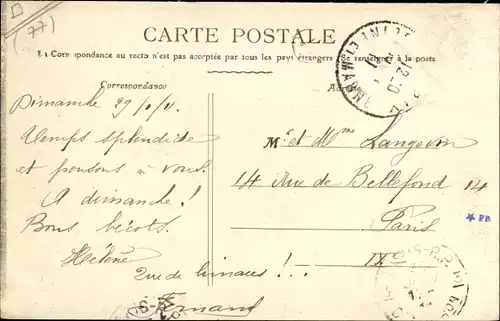 D
(77)
CARTE POSTALE
La Correspondance au recto n'est pas acceptée par tous les pays étrangers se renseigner à la poste
Correspondance
Dimanche 29/
Temps splendide
et pensons à vous.
A dimanche!
Bons bécots.
Hélène
Que de limaces!!--
Fernand
M.r et Mme Langevin
14 Rue de Bellefond 14
Paris
IXe
PB